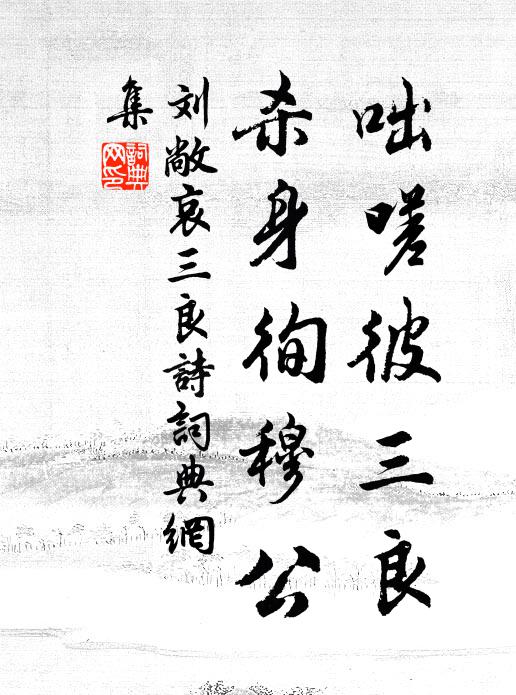 咄嗟彼三良
杀身徇穆公
刘敞哀三良詩詞典網
集
詞典
网印